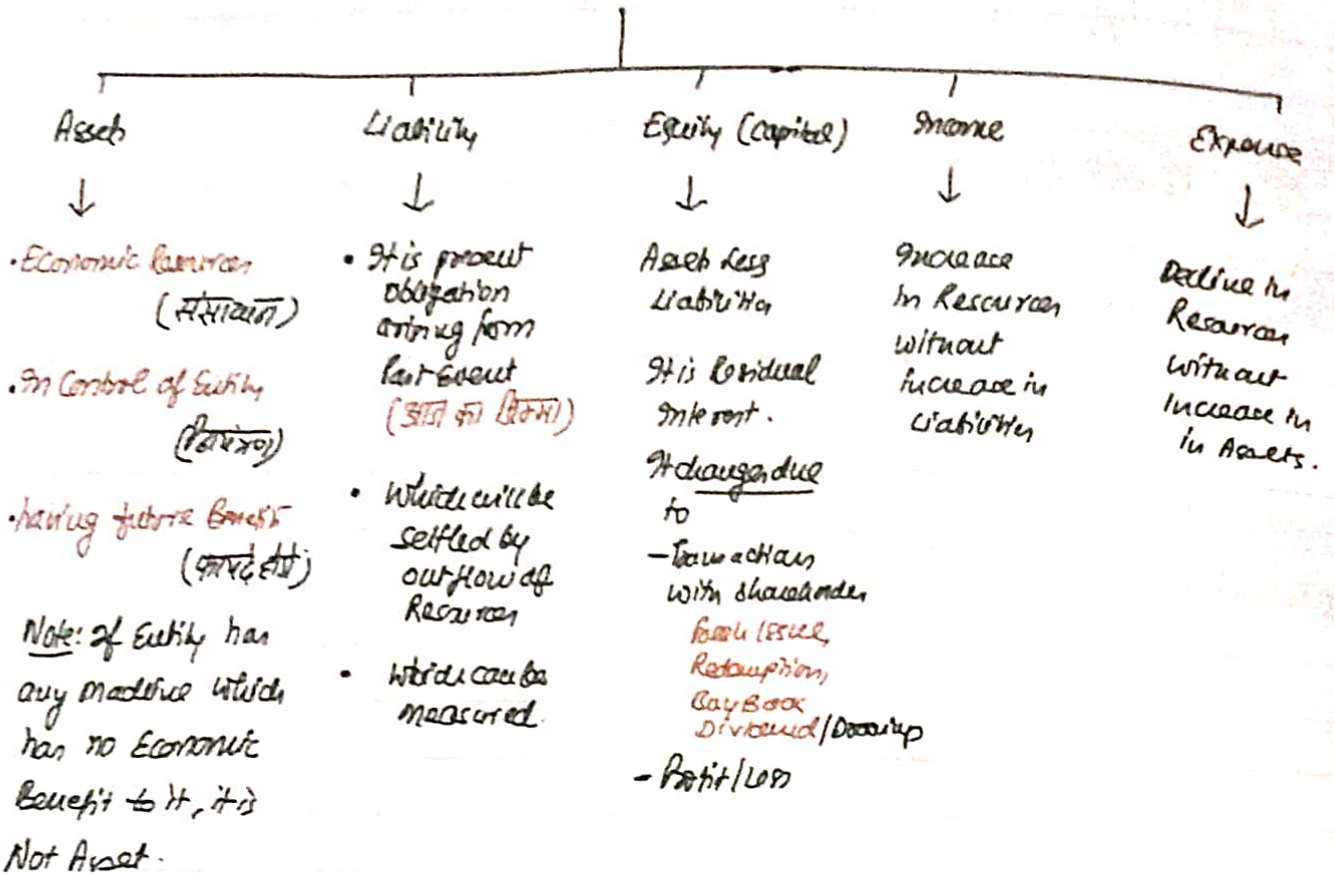 Asset
Liability
Equity (Capital)
Income
Expense
• Economic Resources
(संसाधन)
• In Control of Entity
(नियंत्रण)
• having future Benefit
(फायदे होंगे)
Note: If Entity has
any machine which
has no Economic
Benefit to it, it is
Not Asset.
• It is present
obligation
arising from
Past Event
(आज का जिम्मा)
• Which will be
settled by
outflow of
Resources
• Which can be
measured.
Asset Less
Liabilities
It is Residual
Interest.
It changes due
to
- Transactions
with shareholder
Fresh Issue,
Redemption,
Buy Back
Dividend/Drawings
- Profit/Loss
Increase
in Resources
without
increase in
Liabilities
Decline in
Resources
without
Increase in
in Assets.